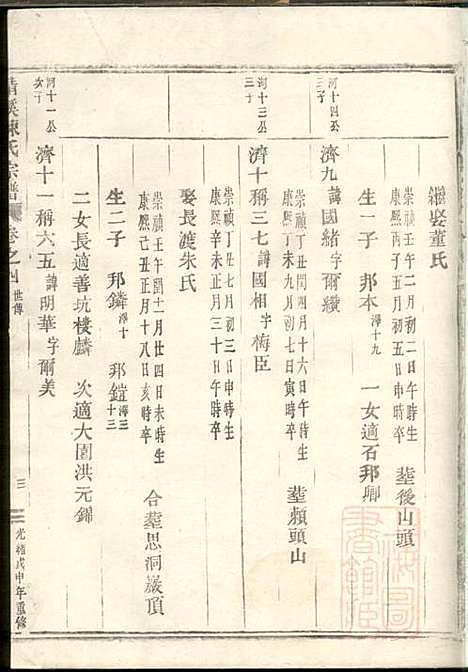 繼娶董氏
崇禎壬午年二月初二日午時生
康熙丙子年五月初五日申時卒
塟後山頭
生一子 邦本 澤十九 一女適石邦卿
河十四公
三子
濟九諱國緒字爾纘
崇禎丁丑閏四月十六日午時生
康熙丁未九月初七日寅時卒
塟頼頭山
河十三公
三子
濟十稱三七諱國相字梅臣
崇禎丁丑七月初三日申時生
康熙辛未正月三十日午時卒
娶長渡朱氏
崇禎壬午閏十一月廿四日未時生
康熙己丑正月十八日亥時卒
合塟思洞巖頂
生二子 邦鏻 澤十 邦鎧 澤三十三
二女長適善坑樓麟 次適大園洪元錦
河十一公
次子
濟十一稱六五諱明華字爾美
清溪陳氏宗譜 卷之四 世傳 三 光緒戊申年重修